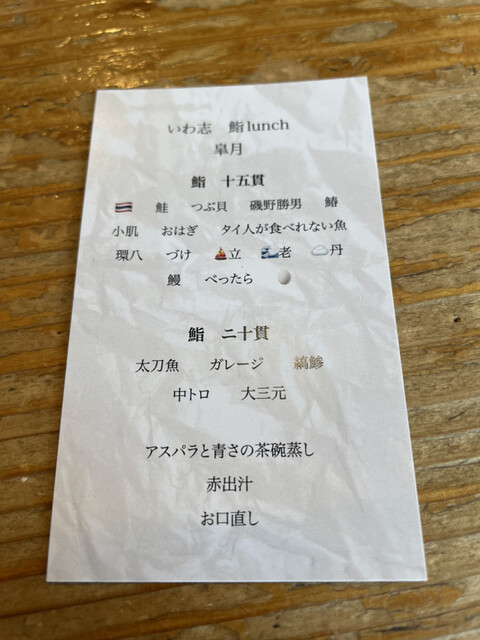 いわ志 鮨lunch
皐月
鮨 十五貫
🇹🇭 鮭 つぶ貝 磯野勝男 鰆
小肌 おはぎ タイ人が食べれない魚
環八 づけ ⛵立 🌊老 ☁️丹
鰻 べったら 🥚
鮨 二十貫
太刀魚 ガレージ 縞鯵
中トロ 大三元
アスパラと青さの茶碗蒸し
赤出汁
お口直し